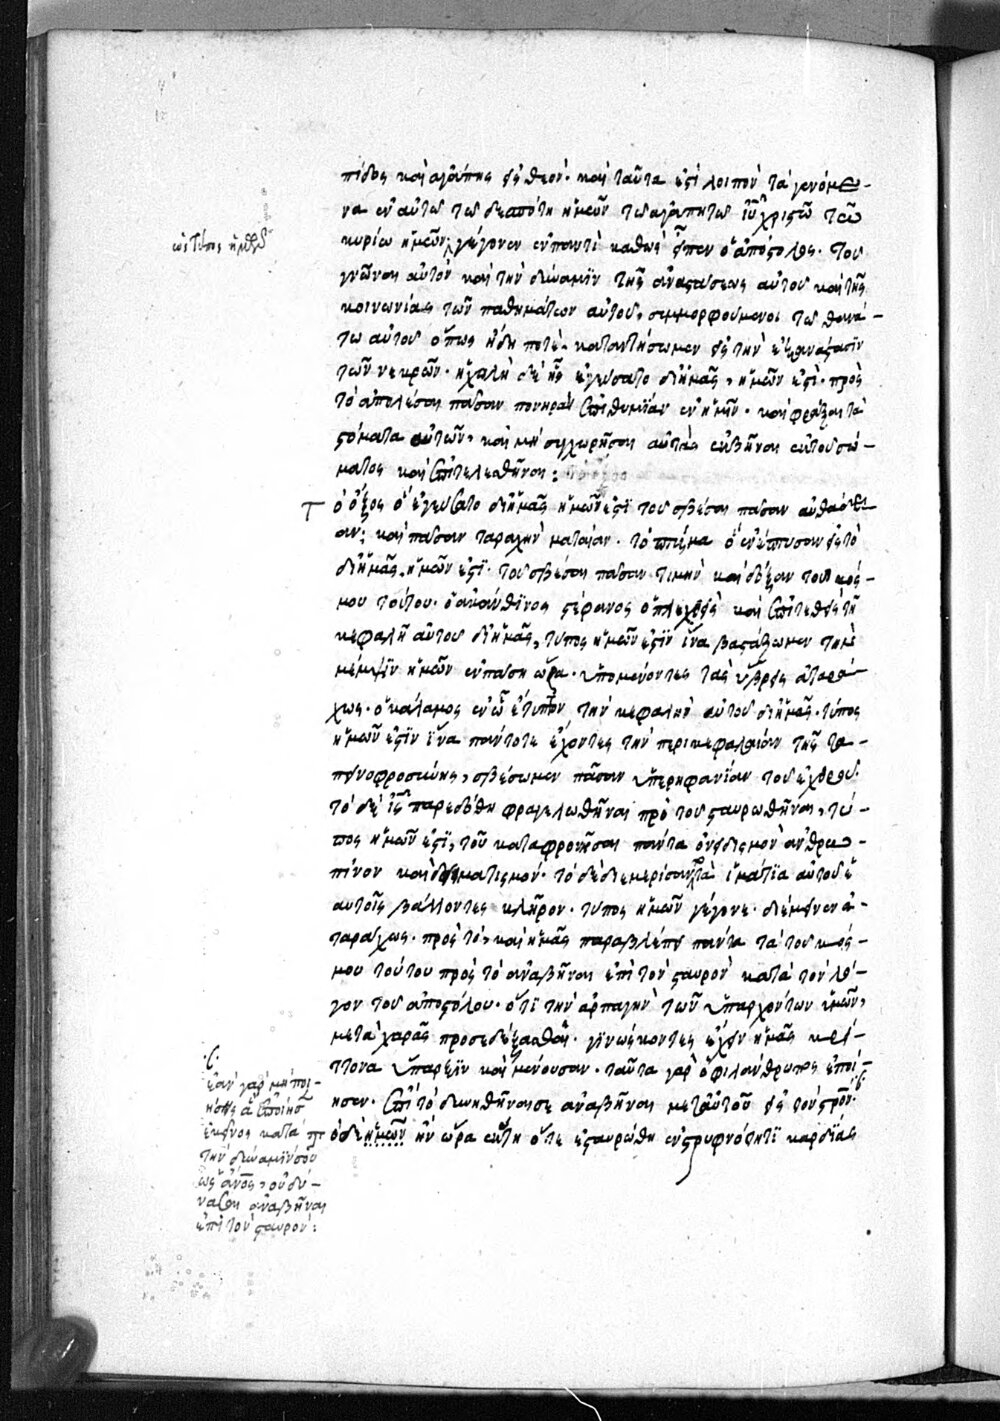 πίδος καὶ ἀγάπης εἰς θεόν· καὶ ταῦτα ἐστὶ λοιπὸν τὰ γενόμε-
να ἐν αὐτῷ τῷ δεσπότη ἡμῶν τῷ ἀγαπητῷ ἰῦ χριστῶ τῶ
ὡς τύπος ἡμῖν
κυρίω ἡμῶν, γέγονεν ἐν παντὶ καθὼς εἶπεν ὁ ἀπόστολος· τοῦ
γνῶναι αὐτὸν καὶ τὴν δύναμιν τῆς ἀναστάσεως αὐτοῦ καὶ τῆς
κοινωνίας τῶν παθημάτων αὐτοῦ, συμμορφούμενοι τῶ θανά-
τω αὐτοῦ ὅπως ἤδη ποτὲ καταντήσωμεν εἰς τὴν ἐξανάστασιν
τῶν νεκρῶν· ἡ χολὴ δὲ ἧς ἐγεύσατο δι' ἡμᾶς, ἡμῶν ἐστὶ· πρὸς
τὸ ἀπολέσαι πᾶσαν πονηρὰν ἐπιθυμίαν ἐν ἡμῖν· καὶ φράξαι τὰ
στόματα αὐτῶν, καὶ μὴ συγχωρῆσαι αὐτὰς ἐκβῆναι ἐκ τοῦ σώ-
ματος καὶ ἐπιτελεσθῆναι:
Τ ὸ ὄξος ὃ ἐγεύσατο δι' ἡμᾶς ἡμῶν ἐστὶ τοῦ σβέσαι πᾶσαν αὐθάδει-
αν· καὶ πᾶσαν ταραχὴν ματαίαν· τὸ πτύσμα ὃ ἐνέπτυσαν εἰς τὸ
δι' ἡμᾶς, ἡμῶν ἐστὶ· τοῦ σβέσαι πᾶσαν τιμὴν καὶ δόξαν τοῦ κόσ-
μου τούτου· ὁ ἀκάνθινος στέφανος ὁ πλεχθεὶς καὶ ἐπιτεθεὶς τῆ
κεφαλῆ αὐτοῦ δι' ἡμᾶς, τύπος ἡμῶν ἐστὶν ἵνα βαστάξωμεν τὴν
μέμψιν ἡμῶν ἐν πάση ὥρα· ὑπομένοντες τὰς ὕβρεις ἀταρά-
χως· ὁ κάλαμος ἐν ὧ ἔτυπτον τὴν κεφαλὴν αὐτοῦ δι' ἡμᾶς· τύπος
ἡμῶν ἐστὶν ἵνα πάντοτε ἔχοντες τὴν περικεφαλαίαν τῆς τα-
πεινοφροσύνης, σβέσωμεν πᾶσαν ὑπερηφανίαν τοῦ ἐχθροῦ·
τὸ δὲ ἰῦ παρεδόθη φραγελωθῆναι πρὸ τοῦ σταυρωθῆναι, τύ-
πος ἡμῶν ἐστὶ, τοῦ καταφρονῆσαι πάντα ὀνειδισμὸν ἀνθρω-
πίνον καὶ δειματισμόν· τὸ δὲ διεμερίσαντο τὰ ἱμάτια αὐτοῦ ἑ-
αυτοῖς βάλλοντες κλῆρον· τύπος ἡμῶν γέγονε· διέμεινεν ἀ-
ταράχως· πρὸς τὸ, καὶ ἡμᾶς παραβλέπειν πάντα τὰ τοῦ κόσ-
μου τούτου πρὸς τὸ ἀναβῆναι ἐπὶ τὸν σταυρὸν κατὰ τὸν λό-
γον τοῦ ἀποστόλου· ὅτι τὴν ἁρπαγὴν τῶν ὑπαρχόντων ὑμῶν,
μετὰ χαρᾶς προσεδέξασθαι· γινώσκοντες ἔχειν ἡμᾶς κρεί-
ττονα ὕπαρξιν καὶ μένουσαν· ταῦτα γὰρ ὁ φιλάνθρωπος ἐποί-
ησεν· ἐπὶ τὸ δυνηθῆναί σε ἀναβῆναι μετ' αὐτοῦ εἰς τὸν στρόν·
ὁ δὲ ἡμῶν ἦν ὥρα ἕκτη ὅτε ἐσταυρώθη ἐν στρυφνότητι καρδίας
ἐὰν γὰρ μὴ ποι-
ήσης ἃ ἐποίησ
ἐκεῖνος κατὰ
τὴν δύναμίν σου
ὡς ἄνος, οὐ δύ-
νασαι ἀναβῆναι
ἐπὶ τὸν σταυρόν: